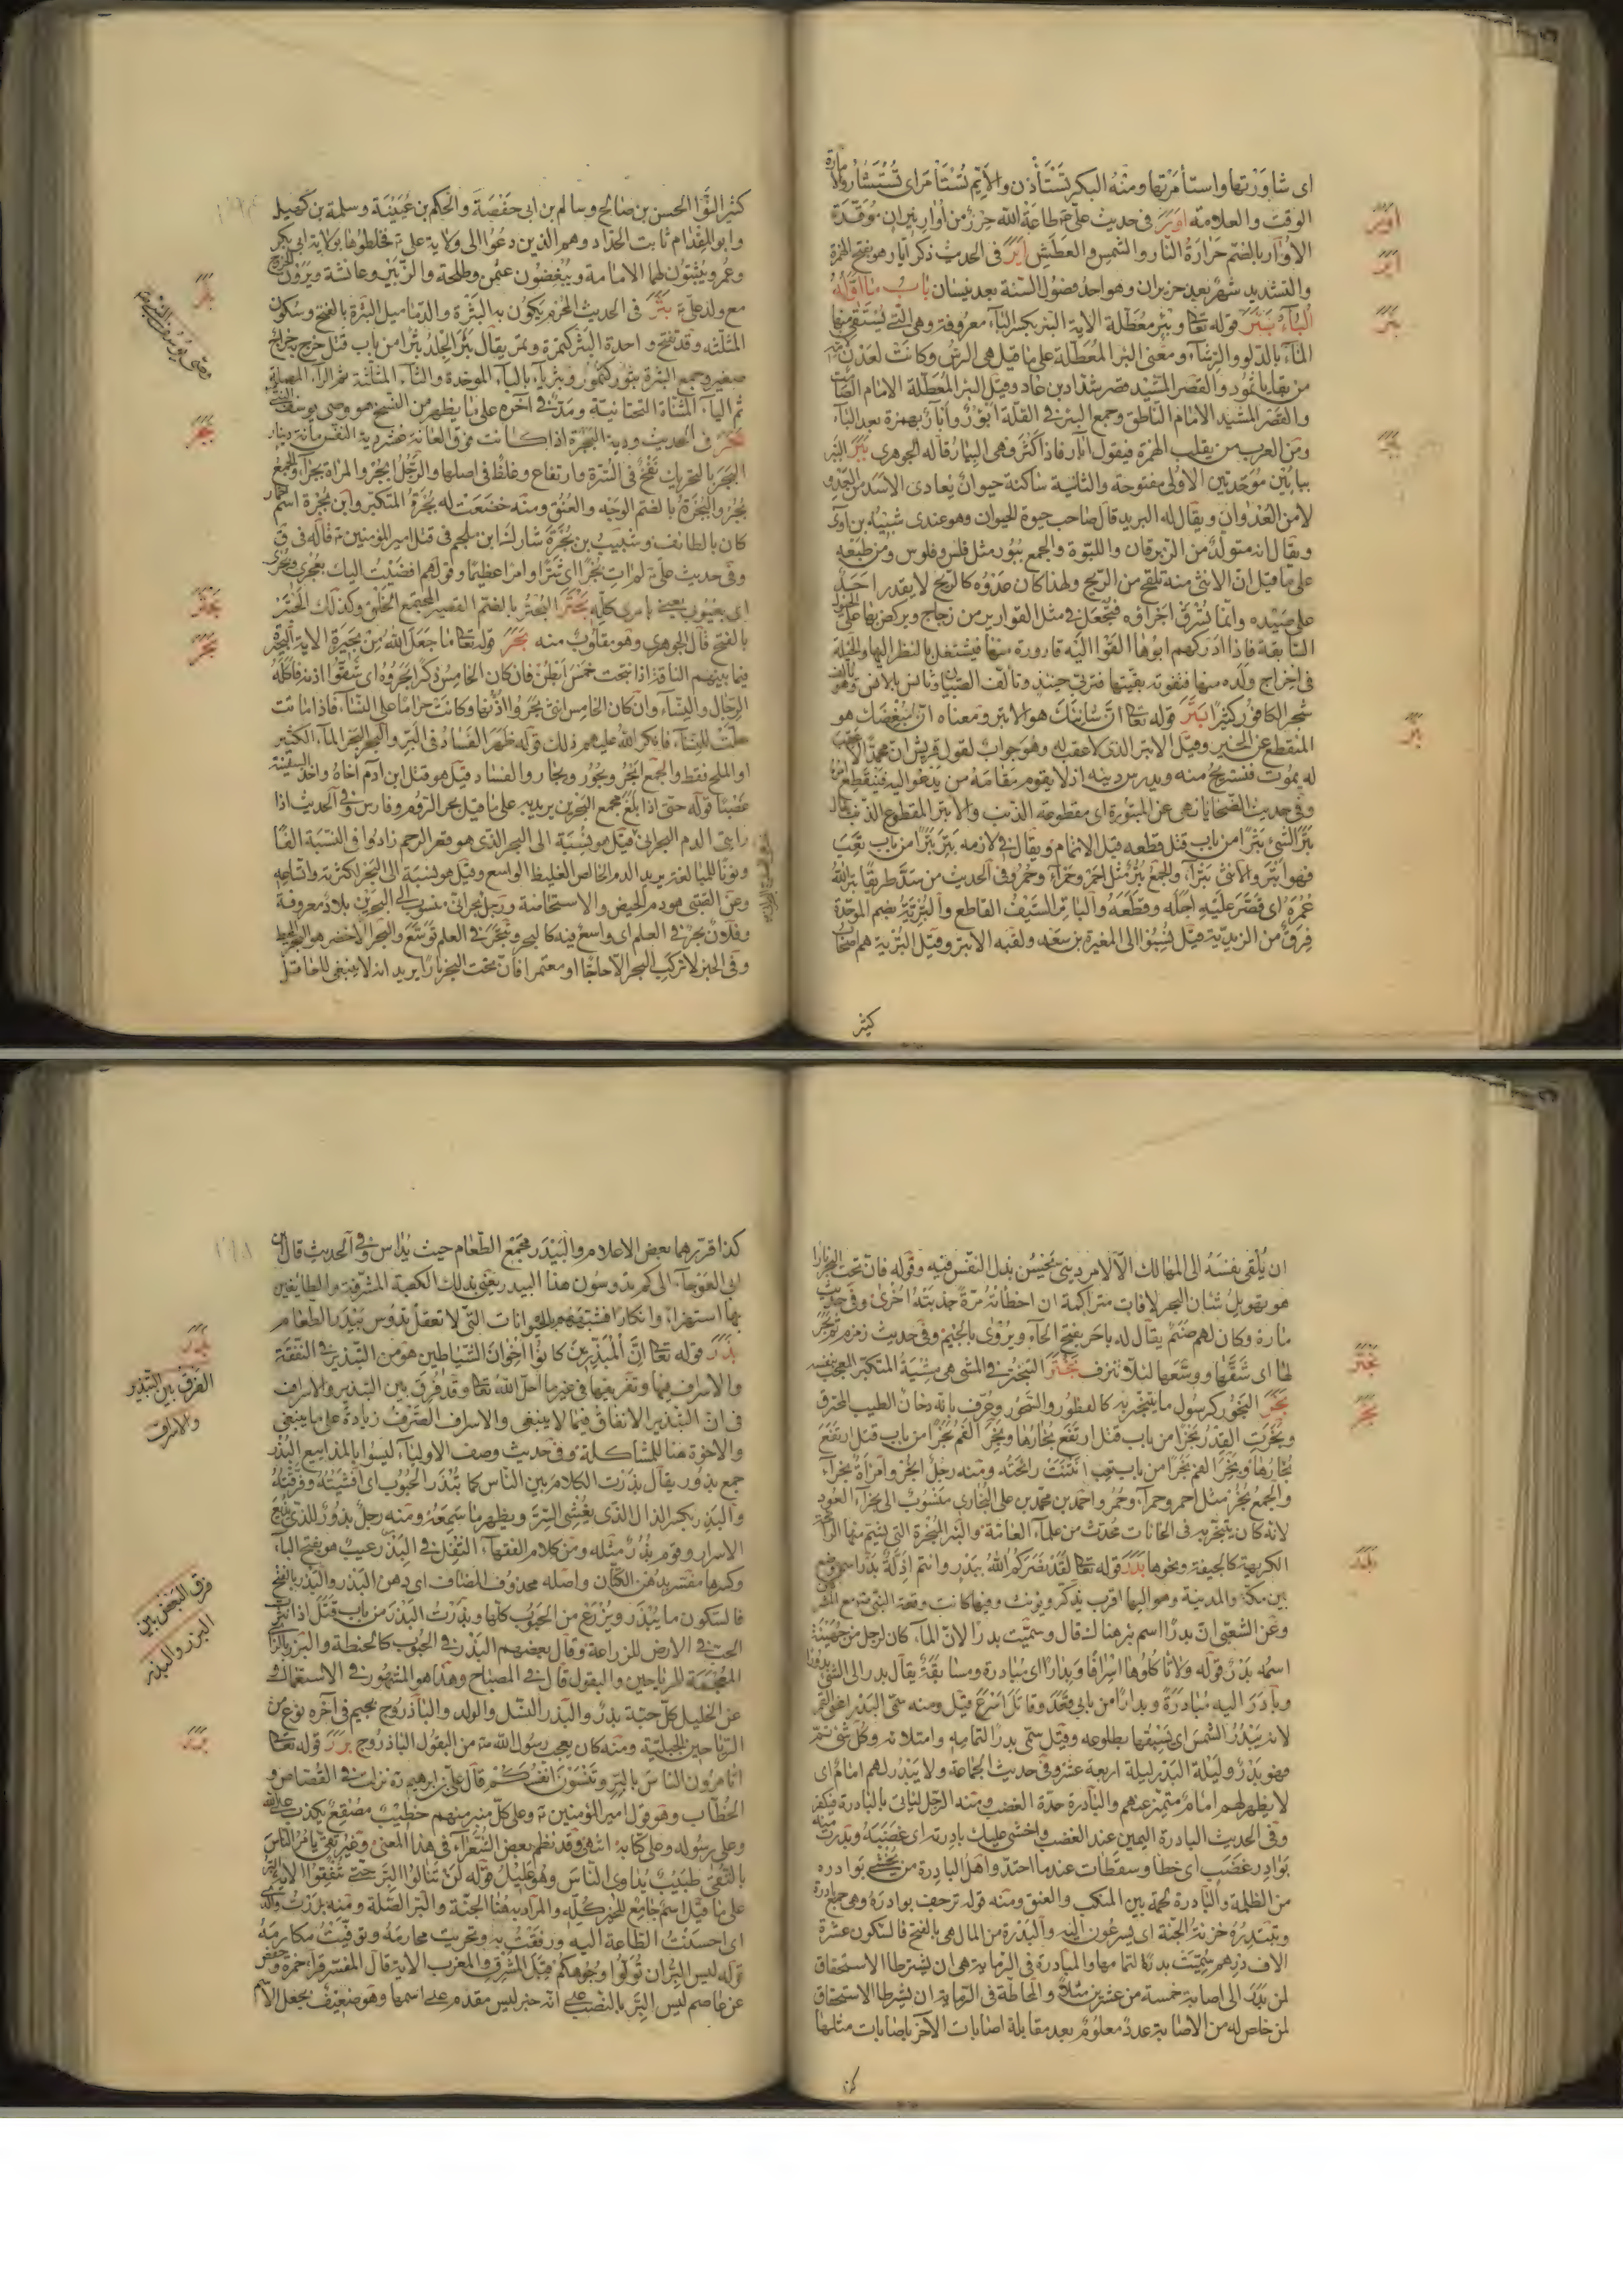 اى شاورتها واستأمرتها ومنه البكر تستأذن والايّم تستأمر اى تستشار والامارة
الوقت والعلامة اور فى حديث علىّ ع طاعة الله حرز من اوار نيران موقدة
الاوار بالضم حرارة النار والشمس والعطش اير فى الحديث ذكر ايّار هو بفتح الهمزة
والتشديد شهر بعد حزيران وهو احد فصول السنة بعد نيسان باب ما اوّله
الباء بئر قوله تعا وبئر معطّلة الاية البئر بكسر الباء معروفة وهى التى يستقى منها
الماء بالدلو والرشاء ومعنى البئر المعطّلة على ما قيل هى الرسّ وكانت لعدن
من بقايا ثمود والقصر المشيد قصر شداد بن عاد وقيل البئر المعطّلة الامام الصامت
والقصر المشيد الامام الناطق وجمع البئر فى القلّة ابؤر وأبار بهمزة بعد الباء
ومن العرب من يقلب الهمزة فيقول آبار فاذا كثرت فهى البئار قاله الجوهرى ببر البَبْر
ببائين موحّدتين الاولى مفتوحة والثانية ساكنة حيوان يعادى الاسد من العَدْو
لا من العدوان ويقال له البريد قال صاحب حيوة الحيوان وهو عندى شبيه بابن آوى
ويقال انه متولّد من الزبرقان واللبوة والجمع ببور مثل فلس وفلوس ومن طبعه
على ما قيل ان الانثى منه تلقح من الريح ولهذا كان عدوه كالريح لا يقدر احد
على صيده وانما تسرق اجراؤه فتجعل فى مثل القوارير من زجاج ويركض بها على الخيول
السابقة فاذا ادركهم ابوها القوا اليه قارورة منها فيشتغل بالنظر اليها والحيلة
فى اخراج ولده منها فتفوته بقيتها فتربّى حينئذ وتألف الصبيان وتأنس بالانس
شجر الكافور كثيرا بتر قوله تعا ان شانئك هو الابتر ومعناه ان مبغضك هو
المنقطع عن الخير وقيل الابتر الذى لا عقب له وهو جواب لقول قريش ان محمدا لا عقب
له يموت فنستريح منه ويدرس دينه اذ لا يقوم مقامه من يدعو اليه فينقطع امره
وفى حديث الضحايا نهى عن المبتورة اى مقطوعة الذنب والابتر المقطوع الذنب يقال
بترت الشىء بترا من باب قتل قطعه قبل الاتمام ويقال فى لازمه بتر بترا من باب تعب
فهو ابتر والانثى بتراء والجمع بتر مثل احمر وحمراء وحمر وفى الحديث من سدّ طريقا بتر الله
عمره اى قصر عليه اجله وقطعه والباتر السيف القاطع والبتريّة بضم الموحّدة
فرق من الزيديّة قيل نسبوا الى المغيرة بن سعد ولقبه الابتر وقيل البترية هم اصحاب
كثير
كثير النوّا الحسن بن صالح وسالم بن ابى حفصة والحكم بن عيينة وسلمة بن كهيل
وابو المقدام ثابت الحدّاد وهم الذين دعوا الى ولاية علىّ ع فخلطوها بولاية ابى بكر
وعمر ويثبتون لهما الامامة ويبغضون عثمن وطلحة والزبير وعائشة ويرون الخروج
مع ولد علىّ ع بثر فى الحديث المحرم يكون به البثرة والدماميل البثرة بالفتح وسكون
المثلثة وقد تفتح واحدة البثر كتمرة وتمر يقال بثر الجلد بثرا من باب قتل خرج به خراج
صغير وجمع البثرة بثور كتمور وبثرياء بالباء الموحّدة والثاء المثلثة ثم الراء المهملة
ثم الياء المثناة التحتانية ومدّ فى آخره على ما يظهر من النسخ هو وصى يوسف
بجر فى الحديث ودية البجرة اذا كانت فوق العانة عشر دية النفس مائة دينار
البَجَر بالتحريك نفخ فى السرّة وارتفاع وغلظ فى اصلها والرجل ابجر والمراة بجراء والجمع
بُجر والبُجرة بالضم الوجه والعنق ومنه خضعت له بجرة المتكبر وابن بجرة اسم خمّار
كان بالطائف وشبيب بن بجرة شارك ابن ملجم فى قتل امير المؤمنين ع قاله فى ق
وفى حديث علىّ ع لم آت بجرا اى شرا وامرا عظيما وقولهم افضيت اليك بعجرى وبجرى
اى بعيوبى يعنى بامرى كله بحتر البحتر بالضم القصير المجتمع الخلق وكذلك الحبتر
بالفتح قال الجوهرى وهو مقلوب منه بحر قوله تعا ما جعل الله من بحيرة الاية البحيرة
فيما بينهم الناقة اذا نتجت خمس ابطن فان كان الخامس ذكرا بحروه اى شقّوا اذنه فاكله
الرجال والنساء وان كان الخامس انثى بحروا اذنها وكانت حراما على النساء فاذا ماتت
حلّت للنساء فانكر الله عليهم ذلك قوله ظهر الفساد فى البر والبحر البحر الماء الكثير
او الملح فقط والجمع ابحر وبحور وبحار والفساد قيل هو قتل ابن آدم اخاه واخذ السفينة
غصبا قوله حتى اذا بلغ مجمع البحرين يريد به على ما قيل بحر الروم وفارس وفى الحديث اذا
رايتى الدم البحرانى قيل هو نسبة الى البحر الذى هو قعر الرحم زادوا فى النسبة الفا
ونونا للمبالغة يريد الدم الخالص الغليظ الواسع وقيل هو نسبة الى البحر لكثرته واتساعه
وعن القتبى هو دم الحيض والاستحاضة ورجل بحرانى منسوب الى البحرين بلاد معروفة
وفلان بحر فى العلم اى واسع فيه كالبحر وتبحّر فى العلم توسّع والبحر الاخضر هو المحيط
وفى الخبر لا تركب البحر الا حاجّا او معتمرا فان تحت البحر نارا يريد انه لا ينبغى للعاقل
ان يلقى بنفسه الى المهالك الا لامر دينى يحسن بذل النفس فيه وقوله فان تحت البحر نارا
هو تهويل شان البحر لافات متراكمة ان اخطأته مرّة جذبته اخرى وفى حديث
مازة وكان لهم صنم يقال له باحر بفتح الحاء ويروى بالجيم وفى حديث زمزم ثم بحر
لها اى شقّها ووسّعها لئلا تنزف بختر التبختر فى المشى هى مشية المتكبر المعجب بنفسه
بخر البخور كرسول ما يتبخّر به كالفطور والسحور وعرّف بانه دخان الطيب المحترق
وبخرت القدر بخرا من باب قتل ارتفع بخارها وبخر الفم بخرا من باب قتل ارتفع
بخارها وبخر الفم بخرا من باب تعب انتنت رائحته ومنه رجل ابخر وامراة بخراء
والجمع بخر مثل احمر وحمراء وحمر واحمد بن محمد بن على البخارى منسوب الى بخراء العود
لانه كان يتبخّر به فى الخانات محدّث من علماء العامّة والبئر المبخرة التى يشم منها الرائحة
الكريهة كالجيفة ونحوها بدر قوله تعا لقد نصركم الله ببدر وانتم اذلّة بدر اسم موضع
بين مكة والمدينة وهو اليها اقرب يذكّر ويؤنّث وفيها كانت وقعة النبى ص مع المشركين
وعن الشعبى ان بدرا اسم بئر هناك قال وسميت بدرا لان الماء كان لرجل من جهينة
اسمه بدر قوله ولا تاكلوها اسرافا وبدارا اى مبادرة ومسابقة يقال بدر الى الشىء بدورا
وبادر اليه مبادرة وبدارا من بابى قعد وقاتل اسرع قيل ومنه سمى البدر اعنى القمر
لانه يبدر الشمس اى يسبقها بطلوعه وقيل سمى بدرا لتمامه وامتلائه وكل شىء تمّ
فهو بدر وليلة البدر ليلة اربعة عشر وفى حديث الجماعة ولا يبدر لهم امام اى
لا يظهر لهم امام متميز عندهم والبادرة حدّة الغضب ومنه الرجل ليأتى بالبادرة فيكفر
وفى الحديث البادرة اليمين عند الغضب واخشى عليك بادرته اى غضبه وبدرت منه
بوادر غضب اى خطا وسقطات عندما احتد واهل البادرة من يخشى بوادره
من الظلمة والبادرة لحمة بين المنكب والعنق ومنه قوله ترجف بوادره وهى جمع بادرة
وتبتدره خزنة الجنة اى يسرعون اليه والبدرة من المال هى بالفتح فالسكون عشرة
الاف درهم سميت بدرة لتمامها والمبادرة فى الرماية هى ان يشترطا الاستحقاق
لمن بدر الى اصابة خمسة من عشرين مثلا والمحاطّة فى الرماية ان يشرطا الاستحقاق
لمن خلص له من الاصابة عدد معلوم بعد مقابلة اصابات الآخر باصابات مثلها
كذا
كذا قرّرهما بعض الاعلام والبيدر مجمع الطعام حيث يداس وفى الحديث قال ابن
ابى العوجاء الى كم تدوسون هذا البيدر يعنى بذلك الكعبة المشرّفة والطائفين
بها استهزاء وانكارا فشبّههم بالحيوانات التى لا تعقل تدوس بيدر الطعام
بذر قوله تعا ان المبذرين كانوا اخوان الشياطين هو من التبذير فى النفقة
والاسراف فيها وتفريقها فى غير ما احلّ الله تعا وقد فرق بين التبذير والاسراف
فى ان التبذير الانفاق فيما لا ينبغى والاسراف الصرف زيادة على ما ينبغى
والاخوة هنا للمشاكلة وفى حديث وصف الاولياء ليسوا بالمذاييع البذر
جمع بذور يقال بذرت الكلام بين الناس كما تبذر الحبوب اى افشيته وفرّقته
والبذر بكسر الذال الذى يفشى السرّ ويظهر ما سمعه ومنه رجل بذور للذى يذيع
الاسرار وقوم بذر مثله ومن كلام الفقهاء الثفل فى البذر عيب هو بفتح الباء
وكسرها مفسّر بدهن الكتّان واصله محذوف المضاف اى دهن البذر والبذر بالفتح
فالسكون ما يبذر ويزرع من الحبوب كلها وبذرت البذر من باب قتل اذا نثرت
الحب فى الارض للزراعة وقال بعضهم البذر فى الحبوب كالحنطة والبزر بالزاء
المعجمة للرياحين والبقول قال فى المصباح وهذا هو المشهور فى الاستعمال
عن الخليل كلّ حبّة بذر والبذر النسل والولد والباذروج بجيم فى آخره نوع من
الرياحين الجبلية ومنه كان يعجب رسول الله ص من البقول الباذروج برر قوله تعا
اتامرون الناس بالبر وتنسون انفسكم قال علىّ بن ابرهيم ره نزلت فى القصّاص و
الخطّاب وهو قول امير المؤمنين ع وعلى كل منبر منهم خطيب مصقع يكذب على الله
وعلى رسوله وعلى كتابه انتهى وقد نظم بعض الشعراء فى هذا المعنى وغير تقىّ يامر الناس
بالتقى طبيب يداوى الناس وهو عليل قوله لن تنالوا البر حتى تنفقوا الاية البرّ
على ما قيل اسم جامع للخير كلّه والمراد به هنا الجنّة والبر الصلة ومنه بررت والدى
اى احسنت الطاعة اليه ورفقت به وتحريت محارمه وتوقّيت مكارمه
قوله ليس البر ان تولوا وجوهكم قبل المشرق والمغرب الاية قال المفسّر قرا حمزة وحفص
عن عاصم ليس البر بالنصب على انه خبر ليس مقدم على اسمها وهو ضعيف بجعل الاسم
اور
اير
بئر
ببر
بتر
بثر
بجر
بحتر
بحر
بختر
بخر
بدر
بذر
الفرق بين التبذير
والاسراف
فرق البعض بين
البزر والبذر
برر